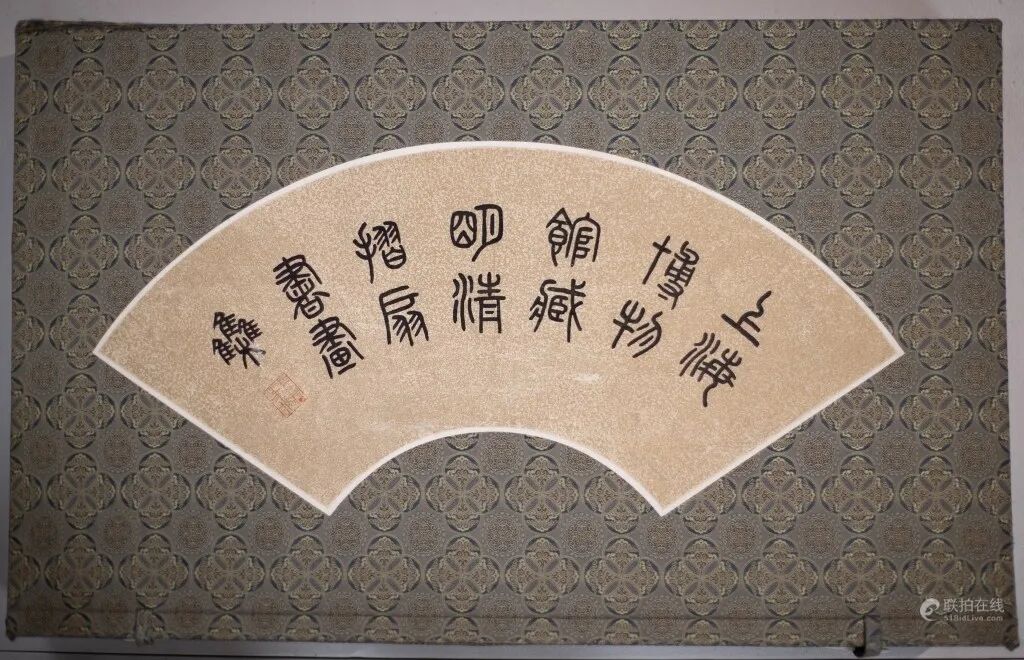 上海
博物
館藏
明清
摺扇
書畫
集
联拍在线
518idLive.com